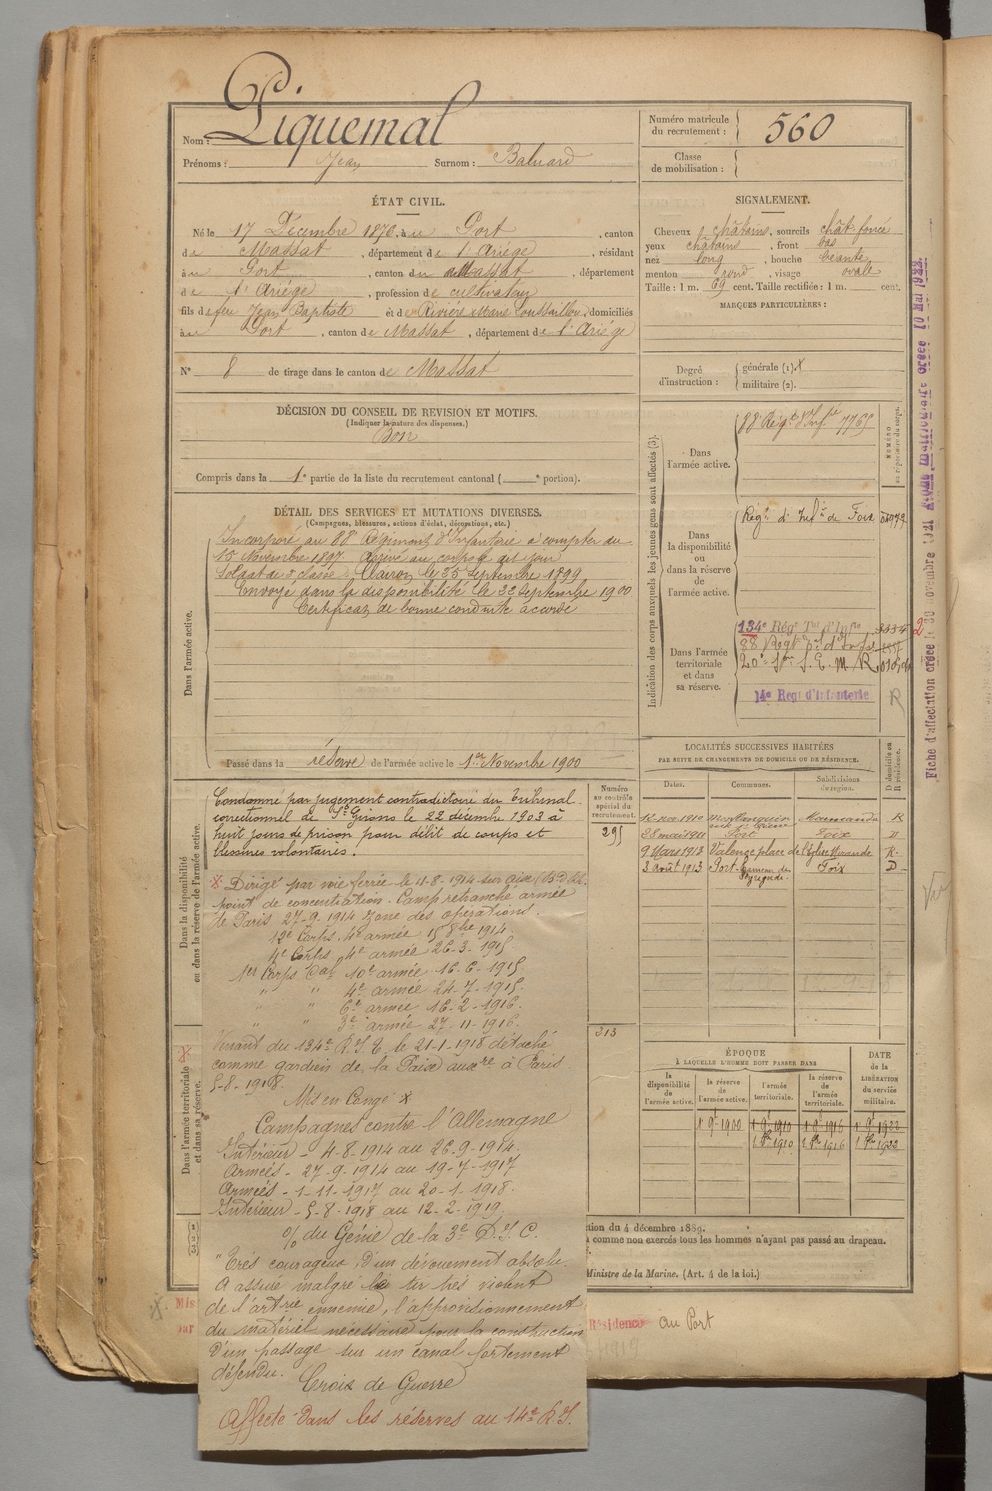 Nom : Piquemal
Prénoms : Jean Surnom : Baluard
Numéro matricule du recrutement : 560
Classe de mobilisation :
ÉTAT CIVIL.
Né le 17 Décembre 1876, à u Port, canton
de Massat, département de l'Ariège, résidant
à u Port, canton du Massat, département
de l'Ariège, profession de cultivateur
fils de feu Jean Baptiste et de Rivière Marie Toussaillou, domiciliés
à u Port, canton de Massat, département de l'Ariège
N° 8 de tirage dans le canton de Massat
SIGNALEMENT.
Cheveux châtains, sourcils chât. foncé
yeux châtains, front bas
nez long, bouche béante
menton rond, visage ovale
Taille : 1 m. 69 cent. Taille rectifiée : 1 m. cent.
MARQUES PARTICULIÈRES :
Degré d'instruction : générale (1). X
militaire (2).
DÉCISION DU CONSEIL DE REVISION ET MOTIFS.
(Indiquer la nature des dispenses.)
Bon
Compris dans la 1e partie de la liste du recrutement cantonal ( e portion).
DÉTAIL DES SERVICES ET MUTATIONS DIVERSES.
(Campagnes, blessures, actions d'éclat, décorations, etc.)
Dans l'armée active.
Incorporé au 88e Régiment d'Infanterie à compter du
15 Novembre 1897. Arrivé au corps le dit jour
Soldat de 2e classe. Clairon le 25 Septembre 1899
Envoyé dans la disponibilité le 22 Septembre 1900
Certificat de bonne conduite accordé
Passé dans la réserve de l'armée active le 1er Novembre 1900
Indication des corps auxquels les jeunes gens sont affectés (3).
Dans l'armée active.
88e Régt d'Infie 7765
NUMÉRO au répertoire du corps.
Dans la disponibilité ou dans la réserve de l'armée active.
Régt d'Infie de Foix
Dans l'armée territoriale et dans sa réserve.
134e Régt Tal d'Infie
88 Régt d'Infie
20e Son S. E. M. R.
14e Régt d'Infanterie
R
Fiche d'affectation créée le 30 novembre 1921
créée 10 Mai 1922
LOCALITÉS SUCCESSIVES HABITÉES
PAR SUITE DE CHANGEMENTS DE DOMICILE OU DE RÉSIDENCE.
Dates. Communes. Subdivisions de région. D domicile ou R résidence.
12 nov. 1910 R
28 mai 1911 Port Foix D
9 Mars 1913 Valence place de l'Église Mirande R.
3 août 1913 Port Foix D
Dans la disponibilité ou dans la réserve de l'armée active.
Condamné par jugement contradictoire du Tribunal
correctionnel de St Girons le 22 décembre 1903 à
huit jours de prison pour délit de coups et
blessures volontaires.
Numéro au contrôle spécial du recrutement.
295
313
Dirigé par voie ferrée le 11-8-1914 sur
point de concentration. Camp retranché armée
de Paris 27-9-1914 zone des opérations.
13e Corps 4e armée 15 8bre 1914
4e Corps 4e armée 26-3-1915
1er Corps Cal 10e armée 16-6-1915
" " 4e armée 24-7-1915.
" " 6e armée 16-2-1916.
" " 3e armée 27-11-1916.
Venant du 134e R.I.T. le 21-1-1918 détaché
comme gardien de la Paix auxre à Paris
5-8-1918.
Mis en Congé X
Campagnes contre l'Allemagne
Intérieur - 4-8-1914 au 26-9-1914.
Armées - 27-9-1914 au 19-7-1917
Armées - 1-11-1917 au 20-1-1918.
Intérieur - 5-8-1918 au 12-2-1919.
% du Génie de la 3e D.I.C.
" Très courageux, d'un dévouement absolu.
A assuré malgré le tir très violent
de l'artrie ennemie, l'approvisionnement
du matériel nécessaire pour la construction
d'un passage sur un canal fortement
défendu. Croix de Guerre
Affecté dans les réserves au 14e R.I.
Dans l'armée territoriale et dans sa réserve.
ÉPOQUE
À LAQUELLE L'HOMME DOIT PASSER DANS
la disponibilité de l'armée active. la réserve de l'armée active. l'armée territoriale. la réserve de l'armée territoriale.
DATE de la LIBÉRATION du service militaire.
1 9e 1900 1 9e 1910 1 9e 1916 1 9e 1922
1 8e 1910 1 8e 1916 1 8e 1922
tion du 4 décembre 1889.
comme non exercés tous les hommes n'ayant pas passé au drapeau.
Ministre de la Marine. (Art. 4 de la loi.)
Mis
par
Résidence au Port
1919